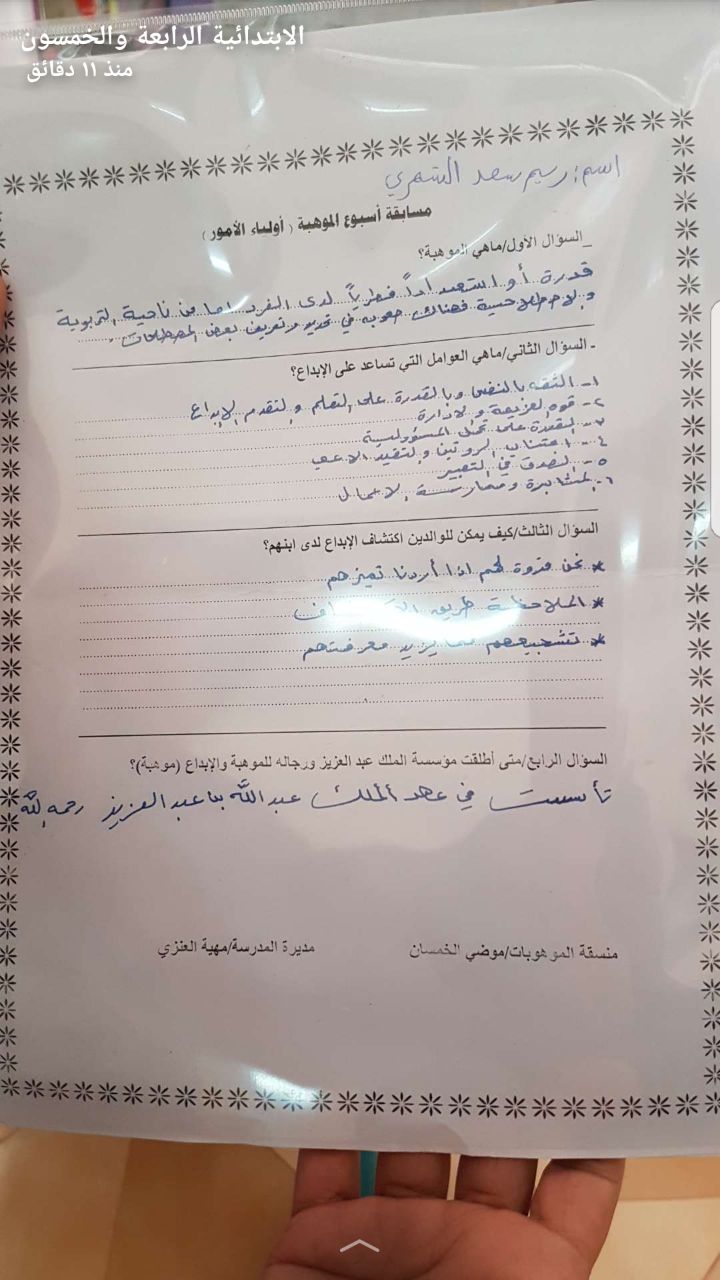 الابتدائية الرابعة والخمسون
منذ ١١ دقائق
اسم: رسيم سعد الشمري
مسابقة أسبوع الموهبة ( أولياء الأمور )
_السؤال الأول/ماهي الموهبة؟
قدرة أو استعداداً فطرياً لدى الفرد اما من ناحية التربوية
والاصطلاحية فهنالك صعوبه في تحديد وتعريف بعض المصطلحات.
- السؤال الثاني/ماهي العوامل التي تساعد على الإبداع؟
١- الثقه بالنفس وبالقدرة على التعلم والتقدم الإبداع
٢- قوه العزيمة والادارة
٣- القدرة على تحمل المسؤولسية
٤- اجتناب الروتين والتقيد
٥- الصدق في التعبير
٦- المثابرة وممارسة الاعمال
السؤال الثالث/كيف يمكن للوالدين اكتشاف الإبداع لدى ابنهم؟
* نحن قدوة لهم اذا أردنا تميزهم
* الملاحظة طريقه
* تشجيعهم مما يزيد معرفتهم
السؤال الرابع/متى أطلقت مؤسسة الملك عبد العزيز ورجاله للموهبة والإبداع (موهبة)؟
تأسست في عهد الملك عبدالله بن عبدالعزيز رحمه الله
منسقة الموهوبات/موضي الخمسان
مديرة المدرسة/مهية العنزي